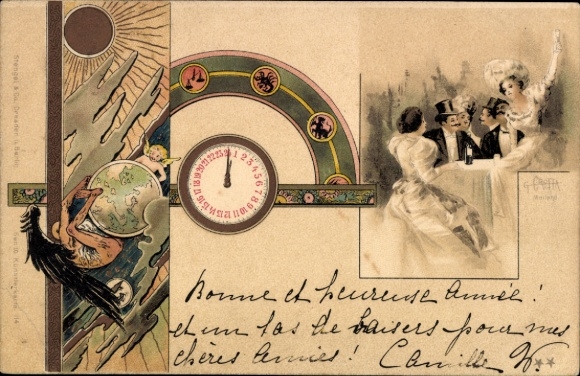 Bonne et heureuse année !
et un tas de baisers pour mes
chères amies ! Camille W.
1 2 3 4 5 6 7 8 9 10 11 12 13 14 15 16 17 18 19 20 21 22 23 24 25